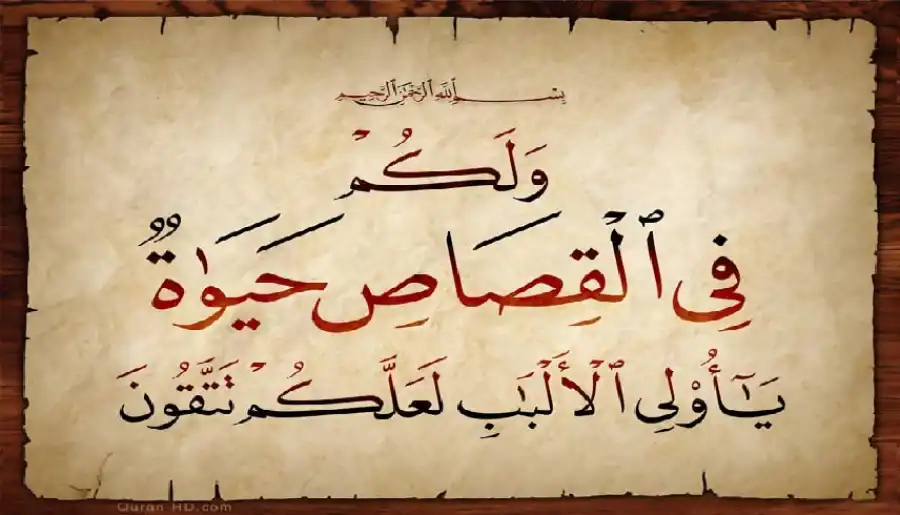 بِسْمِ ٱللَّهِ ٱلرَّحْمَٰنِ ٱلرَّحِيمِ
وَلَكُمْ
فِى ٱلْقِصَاصِ حَيَوٰةٌ
يَـٰٓأُو۟لِى ٱلْأَلْبَـٰبِ لَعَلَّكُمْ تَتَّقُونَ
Quran HD.com